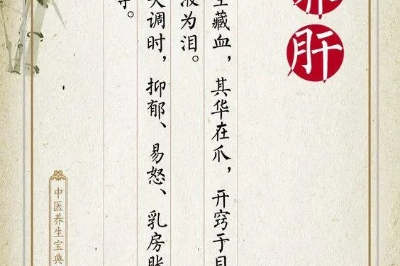 养肝
主藏血，其华在爪，开窍于目
液为泪。
失调时，抑郁、易怒、乳房胀
等。
中医养生宝典